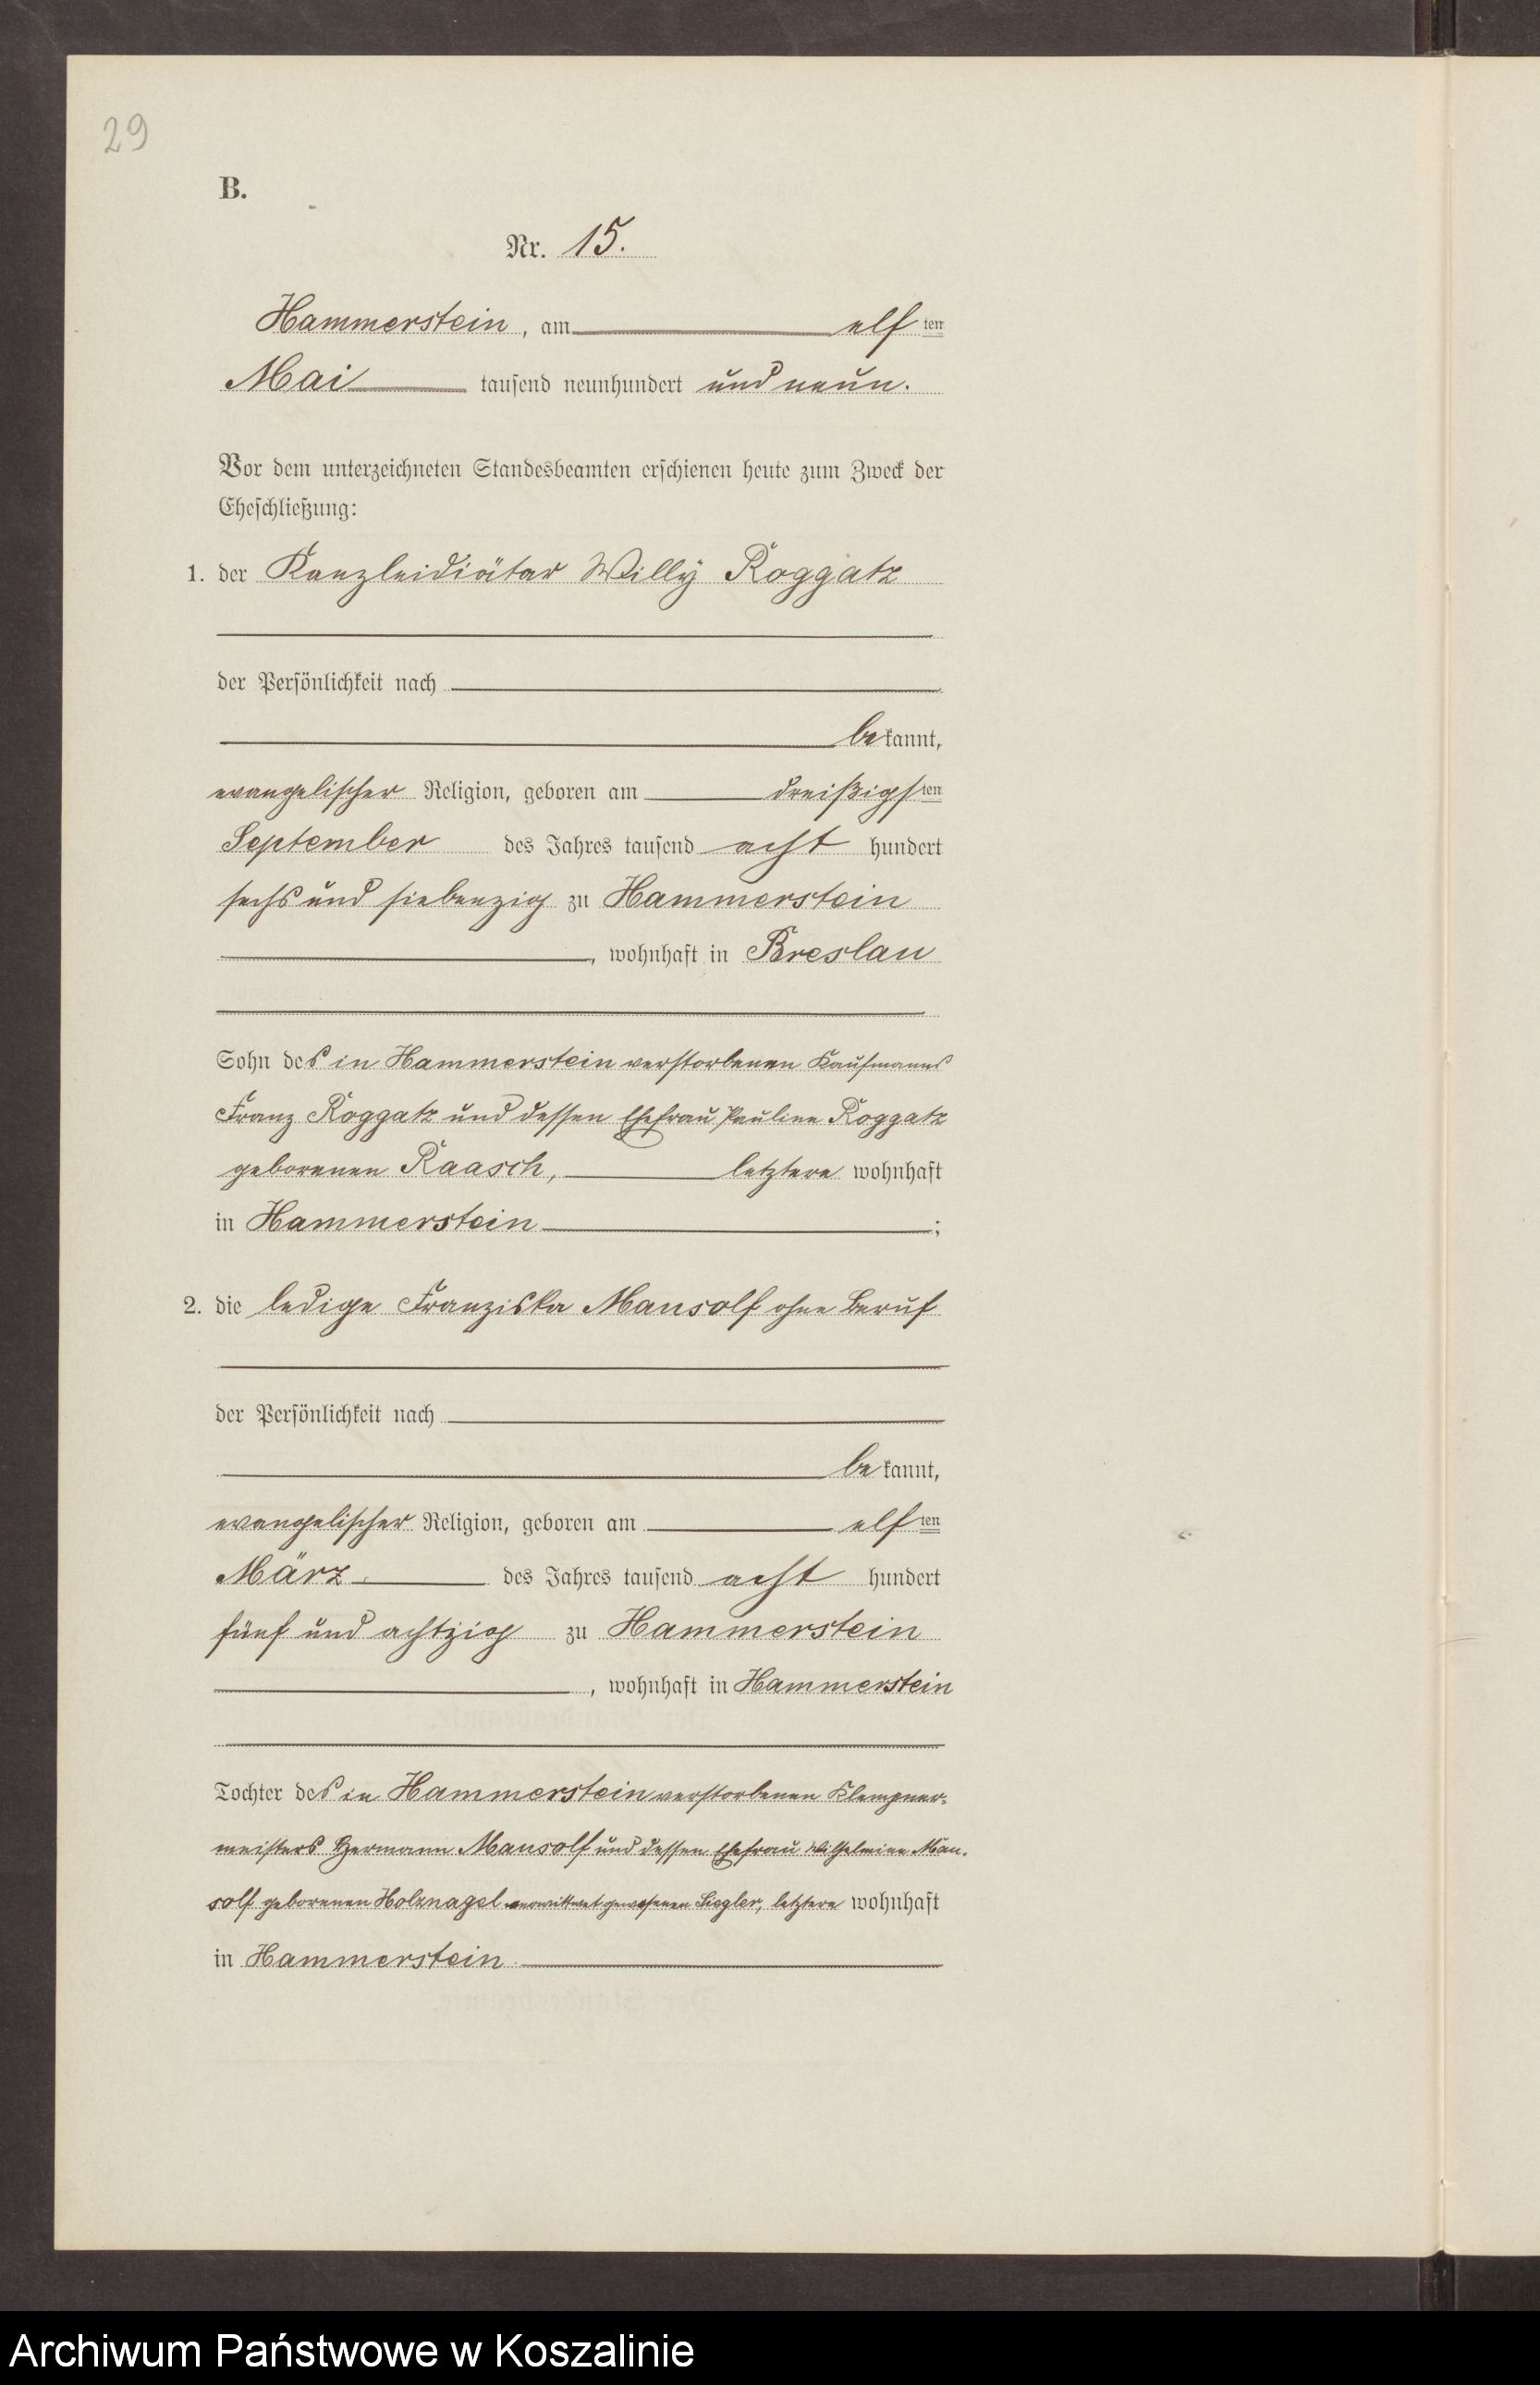 29
B.
Nr. 15.
Hammerstein, am elf ten
Mai tausend neunhundert und neun.
Vor dem unterzeichneten Standesbeamten erschienen heute zum Zweck der
Eheschließung:
1. der Kanzleidiätar Willy Roggatz
der Persönlichkeit nach
bekannt,
evangelischer Religion, geboren am dreißigsten
September des Jahres tausend acht hundert
sechs und siebenzig zu Hammerstein
, wohnhaft in Breslau
Sohn des in Hammerstein verstorbenen Kaufmanns
Franz Roggatz und dessen Ehefrau Pauline Roggatz
geborenen Raasch, letztere wohnhaft
in Hammerstein ;
2. die ledige Franziska Mansolf ohne Beruf
der Persönlichkeit nach
bekannt,
evangelischer Religion, geboren am elf ten
März des Jahres tausend acht hundert
fünf und achtzig zu Hammerstein
, wohnhaft in Hammerstein
Tochter des in Hammerstein verstorbenen Klempner-
meisters Hermann Mansolf und dessen Ehefrau Wilhelmine Man-
solf geborenen Holznagel verwittwet gewesenen Siegler, letztere wohnhaft
in Hammerstein
Archiwum Państwowe w Koszalinie